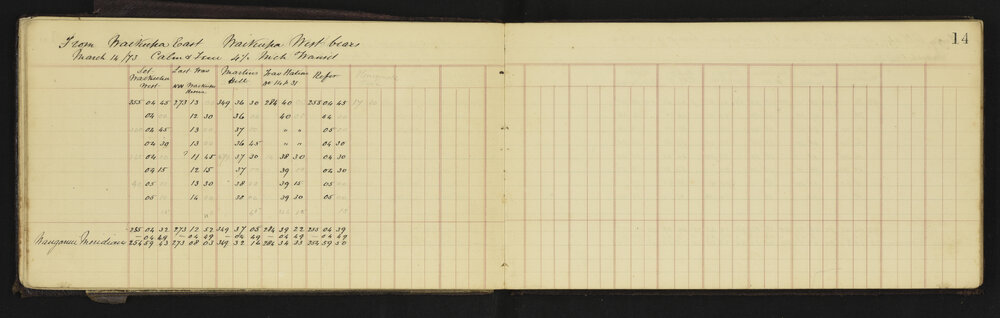 14
From Waikupa East Waikupa West bears
March 14/73 Calm & Fine 4½ Inch Transit
Set Waikupa West Last Trav Waikupa Martins Hill Trav Station Refer
255 04 45 273 13 349 36 30 284 40 255 04 45
04 12 30 36 40 04
04 45 13 37 " " 05
04 30 13 36 45 " " 04 30
04 11 45 37 30 38 30 04 30
04 15 12 15 37 39 04 30
05 13 30 38 39 15 05
05 14 38 39 30 05
255 04 32 273 12 52 349 37 05 284 39 22 255 04 39
— 04 49 — 04 49 — 04 49 — 04 49 — 04 49
Wanganui Meridian 254 59 43 273 08 03 349 32 16 284 34 33 254 59 50